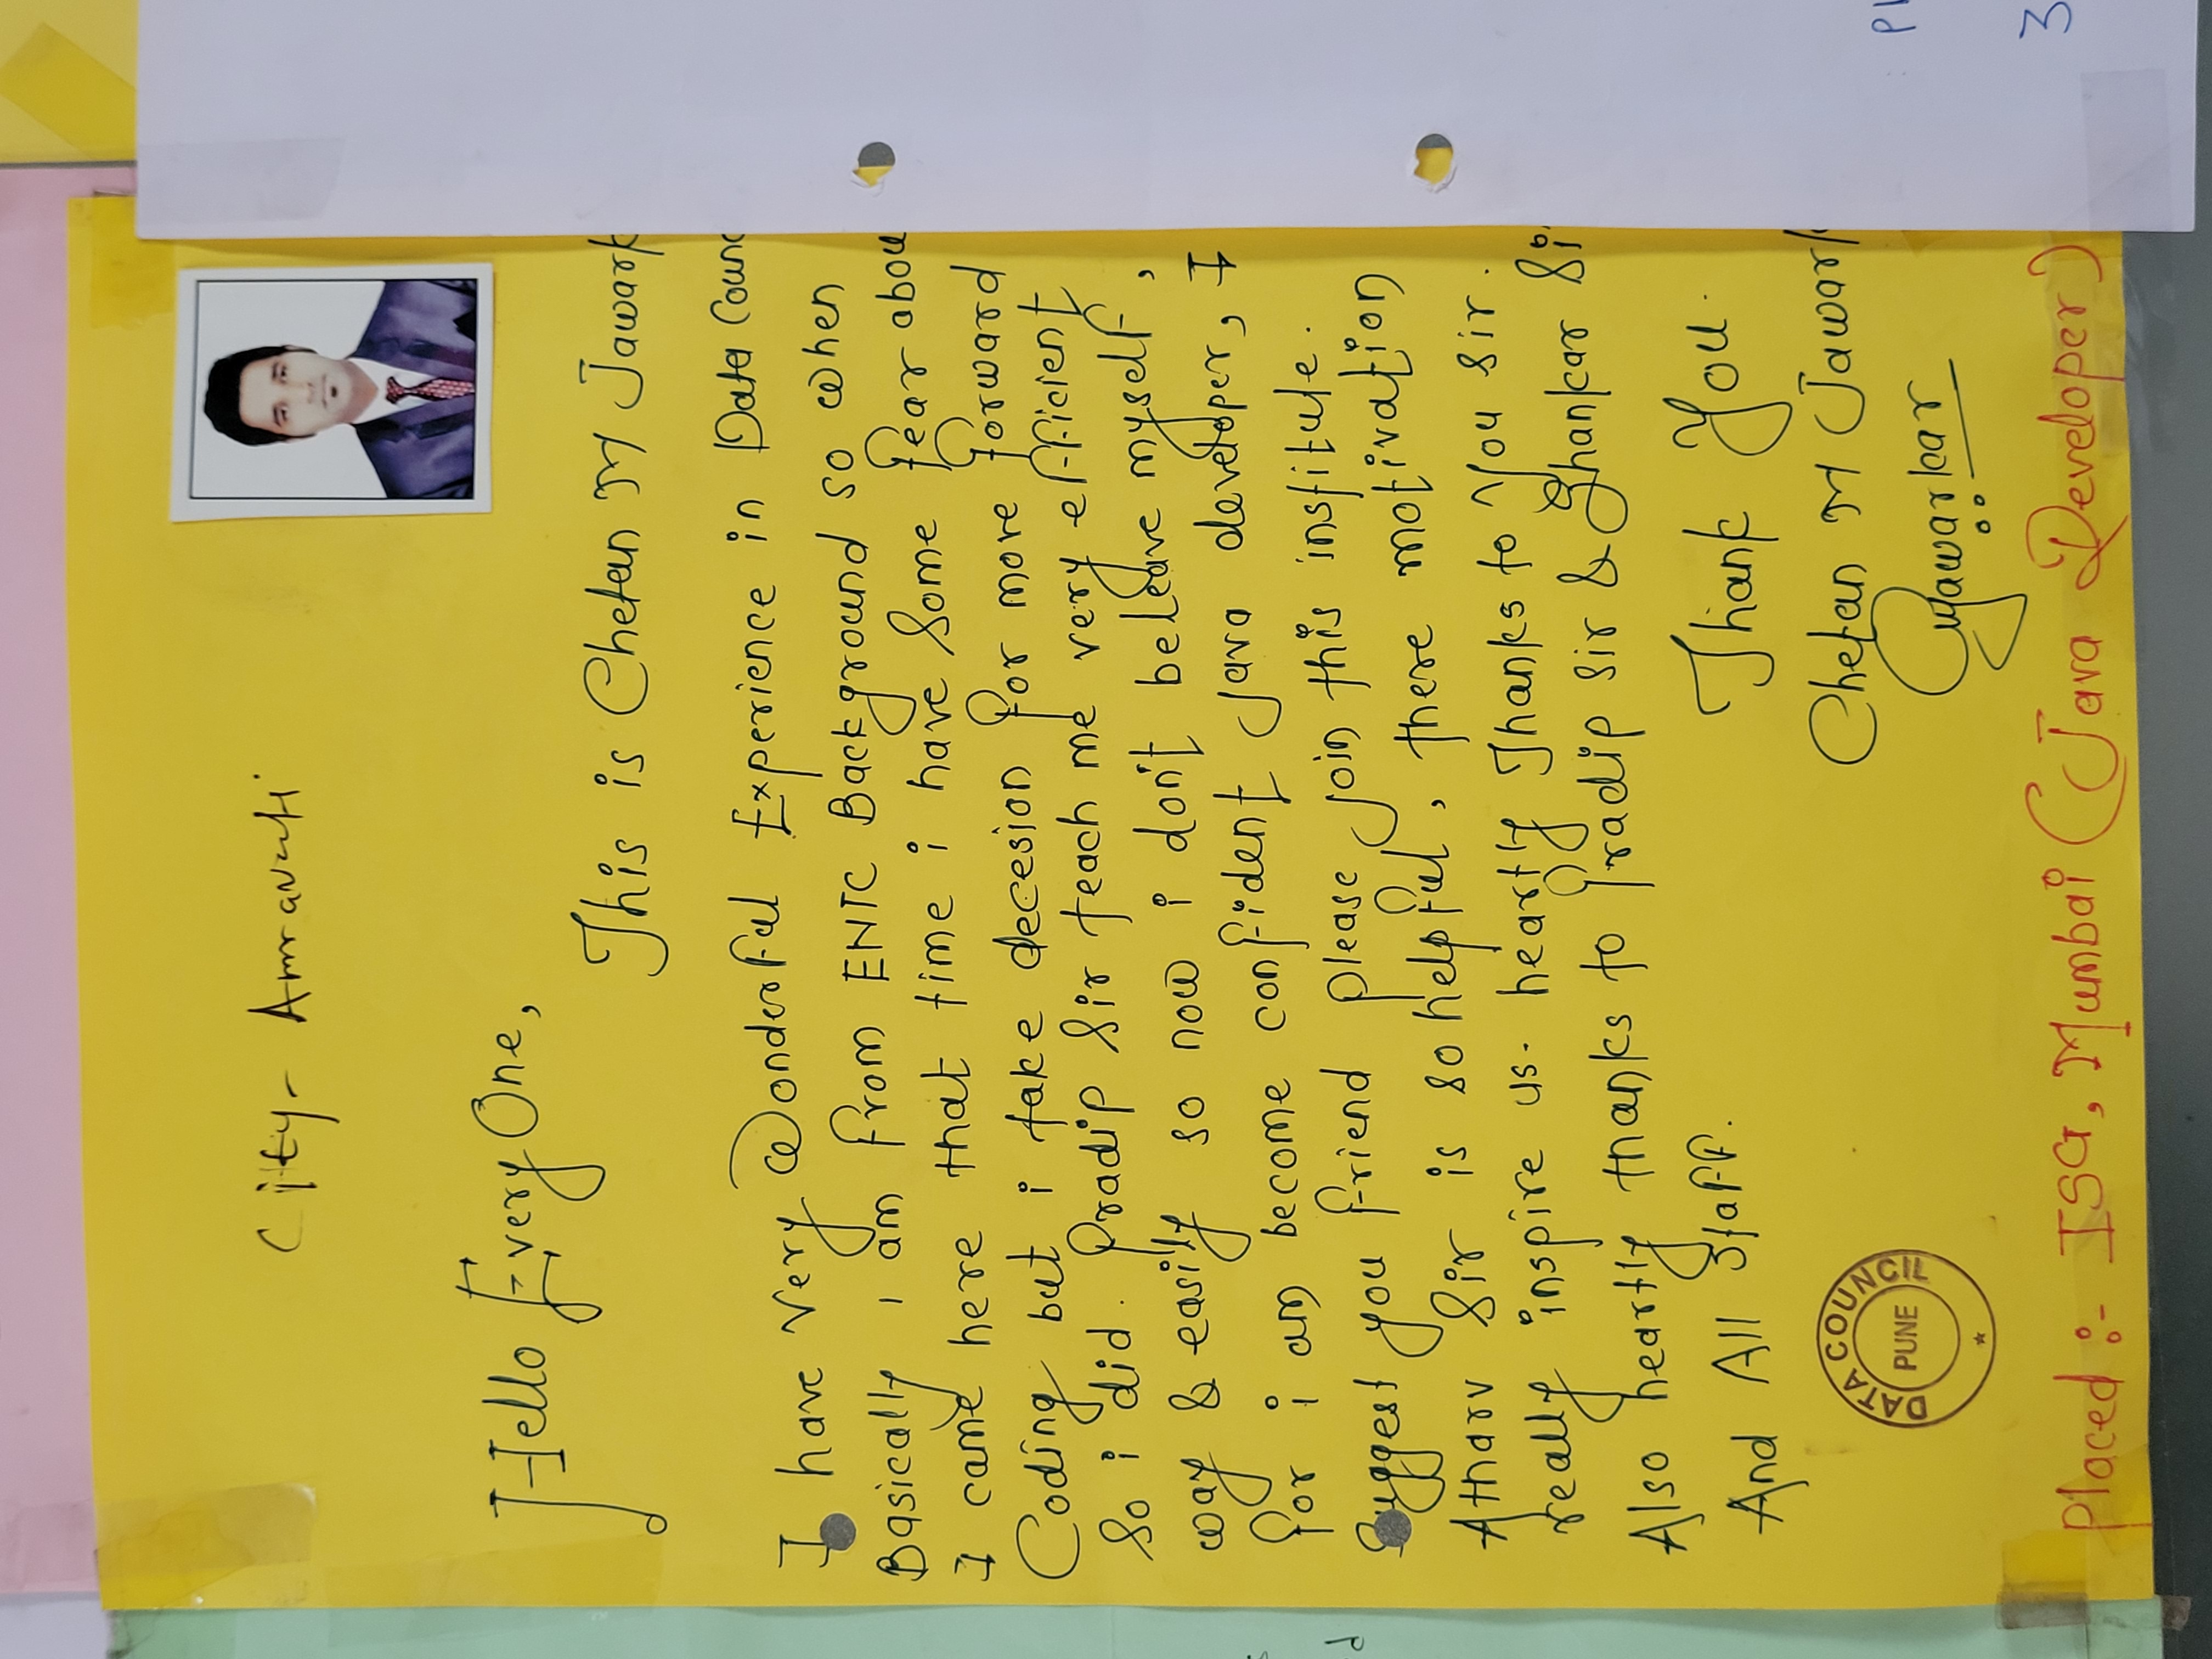 City - Amravati.
Hello Every One,
This is Chetan M Jawark
I have very Wonderful Experience in Data Counc
Basically i am from ENTC Background so when
I came here that time i have Some fear abou
Coding but i take decesion for more forward
So i did. Pradip Sir teach me very efficient
way & easily so now i don't beleave myself,
for i am become confident Java developer, I
Suggest you friend please Join this institute.
Atharv Sir is so helpful, there motivation
really inspire us. heartly Thanks to You Sir.
Also heartly thanks to Pradip Sir & Shankar Sir
And All Staff.
Thank You.
Chetan M Jawar
DATA COUNCIL
PUNE
Placed :- ISG, Mumbai (Java Developer)
3